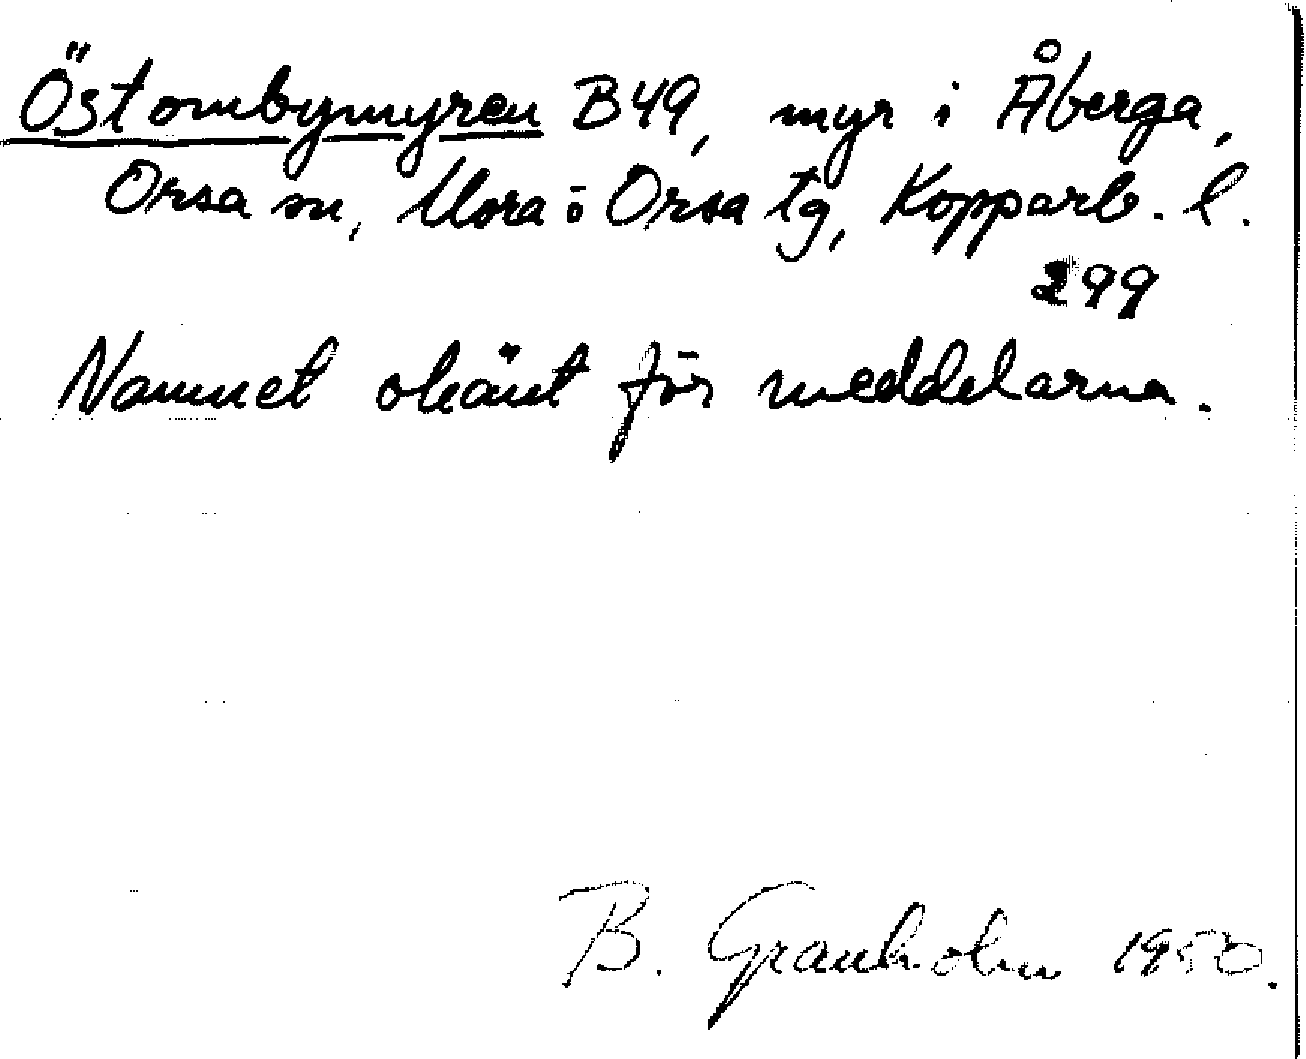 Östombymyren B49, myr i Åberga,
Orsa sn, Mora o Orsa tg, Kopparb. l.
299
Namnet okänt för meddelarna.
B. Granholm 1950.